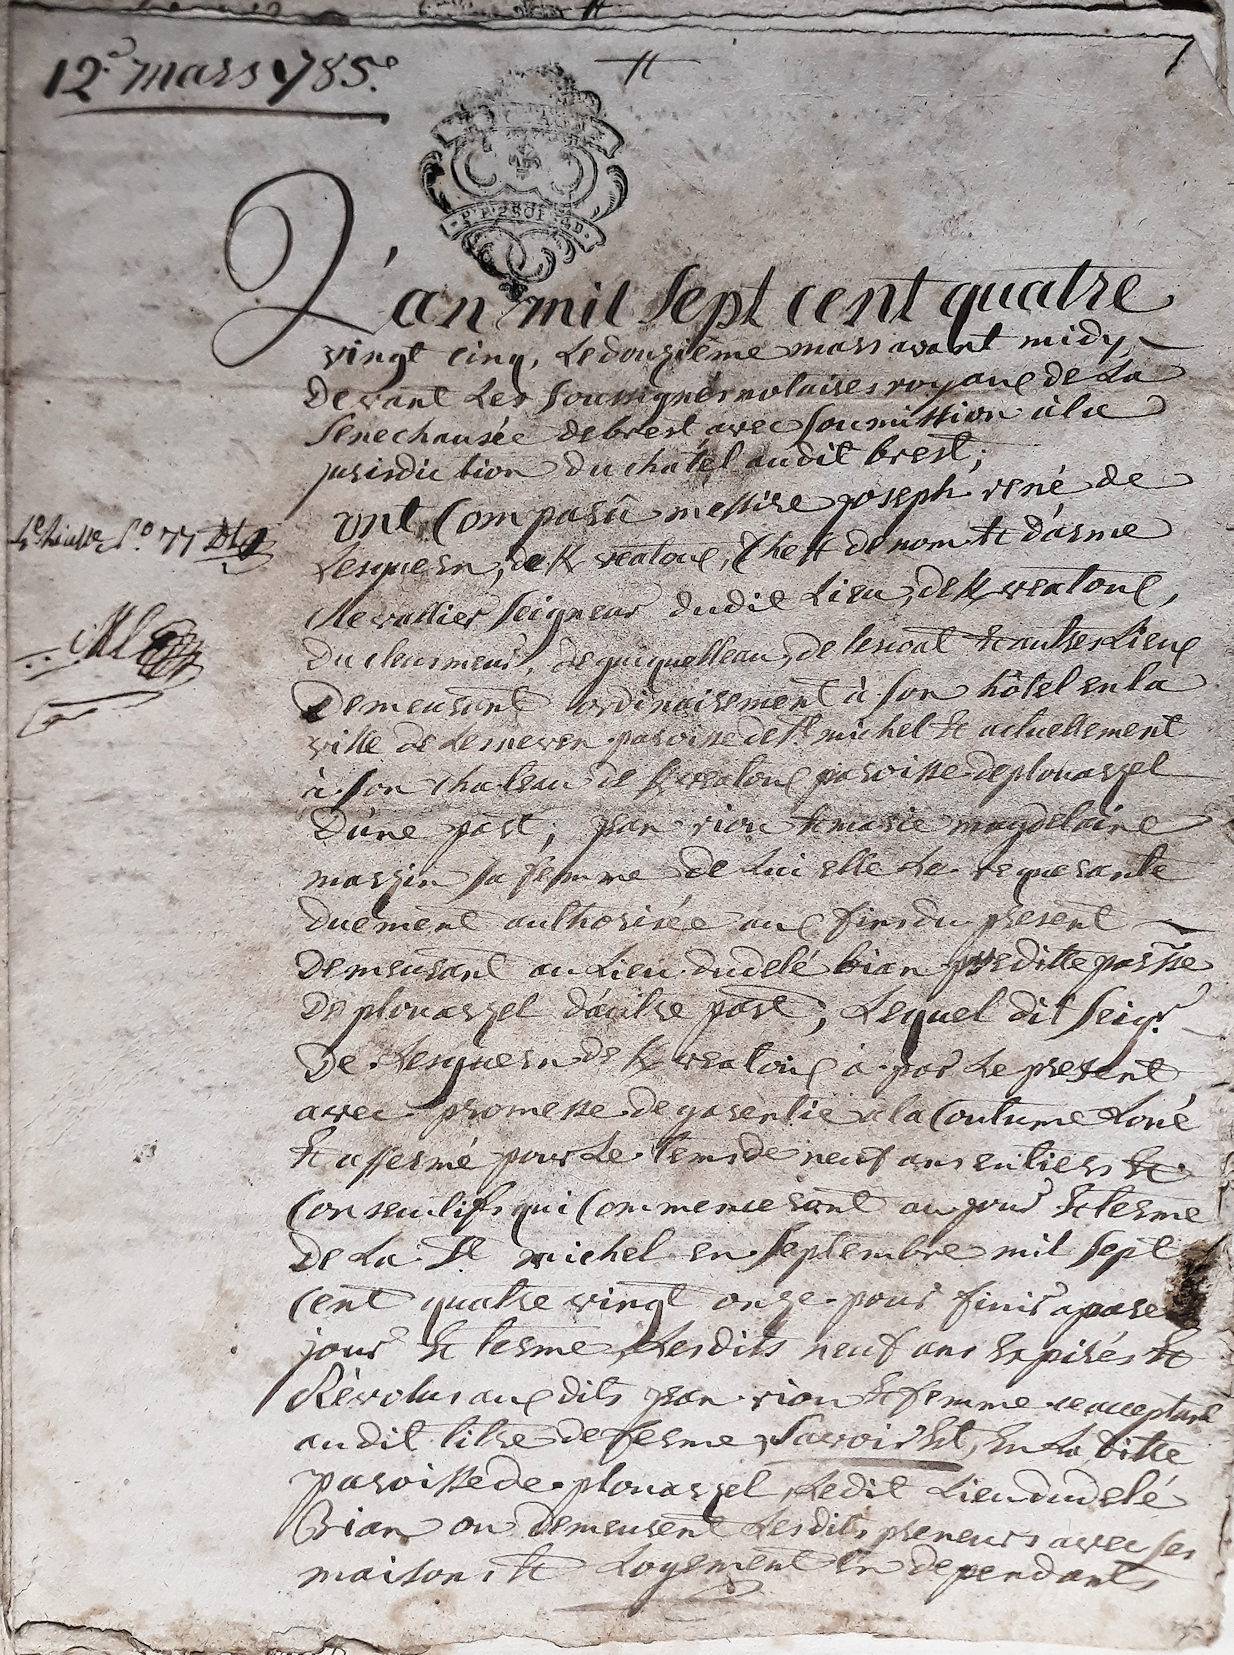 12e mars 1785.e
P.P. 2 SOLS 4 D.
L'an mil sept cent quatre
vingt cinq, Le douzième mars avant midy,
devant Les soussignés notaires royaux de La
senechausée de brest avec soumission à la
jurisdiction du chatel audit brest;
ont Comparû messire joseph rené de
Lesguern, de K/veatoux, Cheff de nom & d'arme
chevallier seigneur dudit Lieu, de K/veatoux,
du cleusmeur, de guiquelleau, de lescoat & autres Lieux
Demeurant ordinairement à son hôtel en la
ville de Lesneven paroisse de St michel & actuellement
à son chateau de K/veatoux paroisse de plouarzel
d'une part; jean riou & marie magdelaine
marzin sa femme de Lui elle Le requerante
duement authorisée aux fins du present
Demeurant au Lieu dudelé bian preditte parsse
De plouarzel d'autre part; Lequel dit seigr
De Lesguern de K/veatoux à par Le present
avec promesse de garentie à la Coutume Loué
& affermé pour Le tems de neuf ans entiers &
Consecutifs qui Commenceront au jour & terme
De La St michel en septembre mil sept
Cent quatre vingt onze pour finir a pareil
jour & terme, Lesdits neuf ans Expirés &
Révolus aux dits jean riou & femme acceptant
audit titre de ferme, savoir Est, En La ditte
paroisse de plouarzel, Ledit Lieu dudelé
Bian ou demeurent Lesdits preneurs avec ses
maisons & Logement En dependants